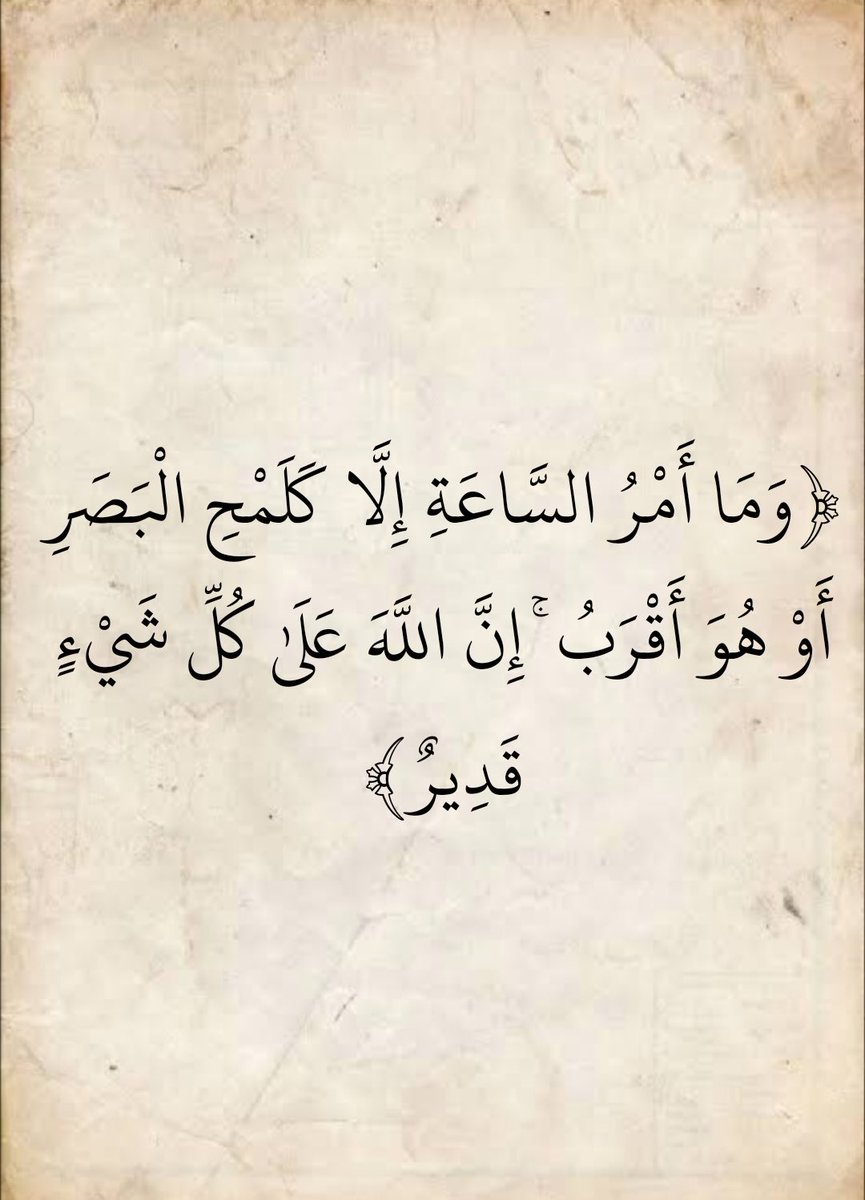 ﴿وَمَا أَمْرُ السَّاعَةِ إِلَّا كَلَمْحِ الْبَصَرِ
أَوْ هُوَ أَقْرَبُ ۚ إِنَّ اللَّهَ عَلَىٰ كُلِّ شَيْءٍ
قَدِيرٌ﴾